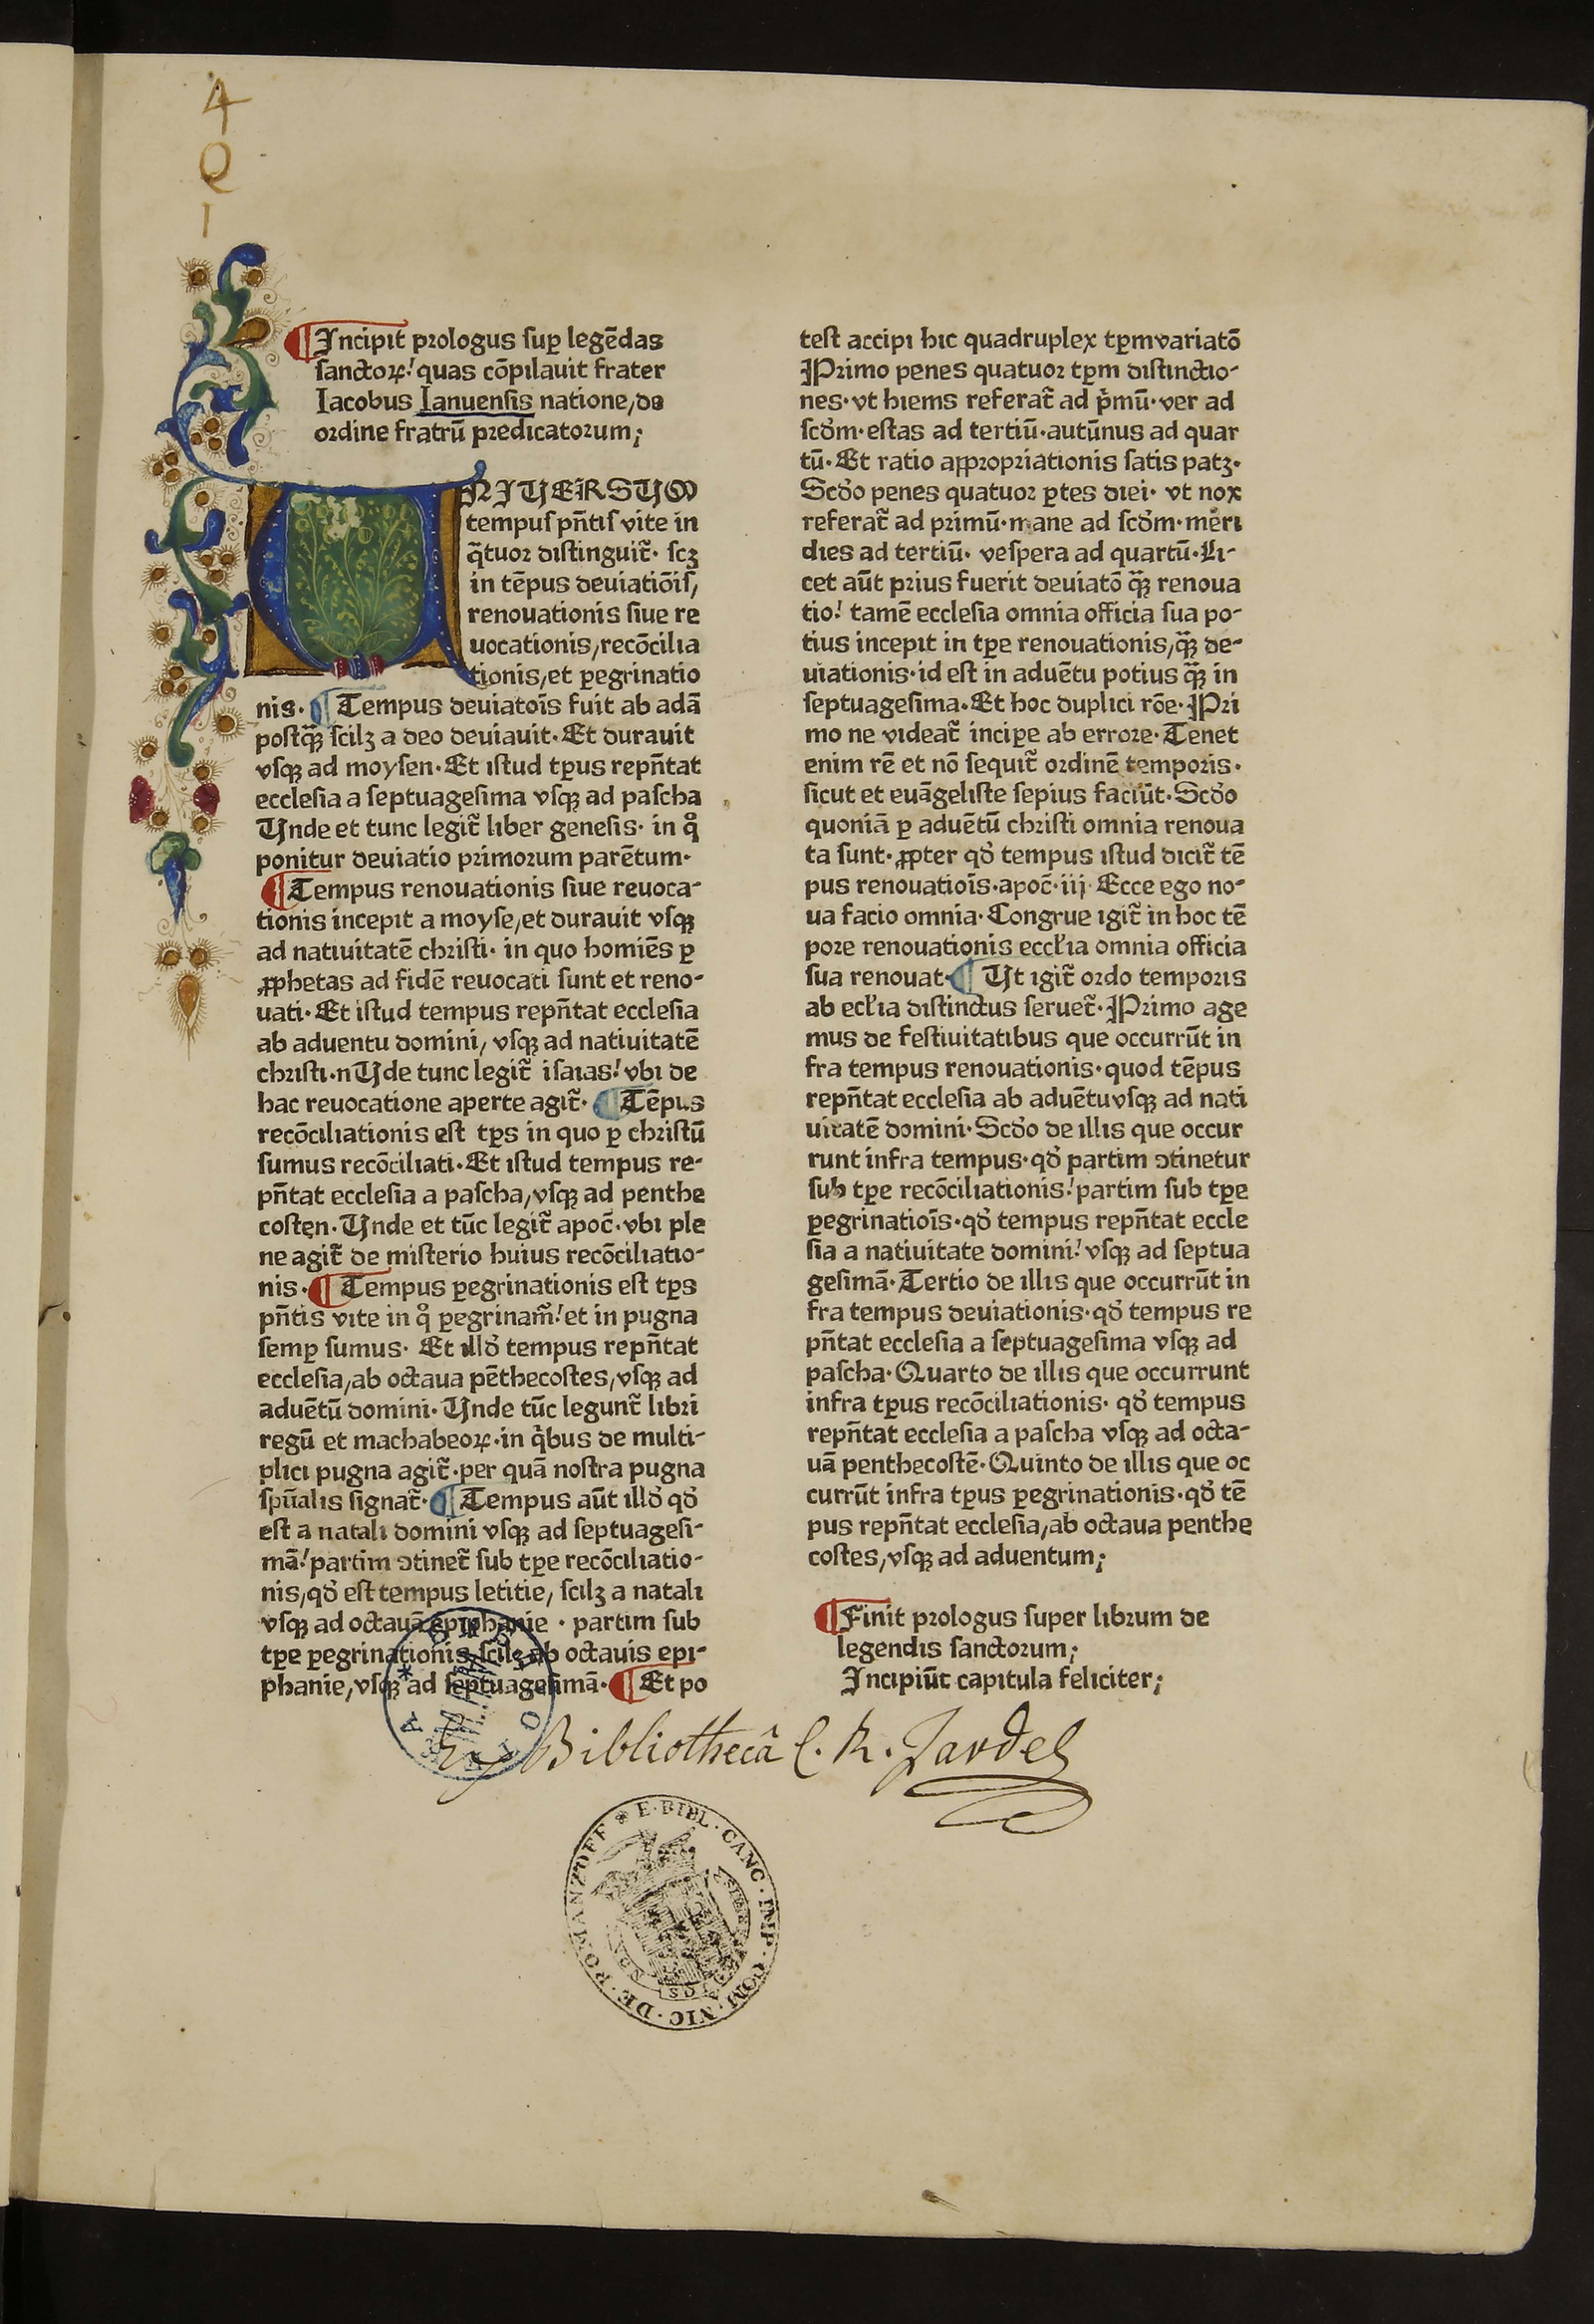 4
Q
1
¶Incipit prologus sup̲ legēdas
sanctoꝝ! quas cōpilauit frater
Iacobus Ianuensis natione, de
ordine fratrū predicatorum;
VNIVERSUM
tempus pñtis vite in
q̄tuor distinguit᷑· scꝫ
in tēpus deuiatiōis,
renouationis siue re
uocationis, recōcilia
tionis, et ꝑegrinatio
nis· ¶ Tempus deuiatoīs fuit ab adā
postq̄ꝫ scilꝫ a deo deuiauit· Et durauit
vsqꝫ ad moysen· Et istud tp̄us repñtat
ecclesia a septuagesima vsqꝫ ad pascha
Vnde et tunc legit᷑ liber genesis· in qͦ
ponitur deuiatio primorum parētum·
¶Tempus renouationis siue reuoca-
tionis incepit a moyse, et durauit vsqꝫ
ad natiuitatē christi· in quo homiēs ꝑ
ꝓphetas ad fidē reuocati sunt et reno-
uati· Et istud tempus repñtat ecclesia
ab aduentu domini, vsqꝫ ad natiuitatē
christi·nVde tunc legit᷑ isaias! vbi de
hac reuocatione aperte agit᷑· ¶ Tēpus
recōciliationis est tp̄s in quo ꝑ christū
sumus recōciliati· Et istud tempus re-
pñtat ecclesia a pascha, vsqꝫ ad penthe
costen· Vnde et tūc legit᷑ apoc̄· vbi ple
ne agit᷑ de misterio huius recōciliatio-
nis· ¶ Tempus ꝑegrinationis est tp̄s
pñtis vite in qͦ ꝑegrinam᷑! et in pugna
semꝑ sumus· Et illd̓ tempus repñtat
ecclesia, ab octaua pēthecostes, vsqꝫ ad
aduētū domini· Vnde tūc legunt᷑ libri
regū et machabeoꝝ·in qͥbus de multi-
plici pugna agit᷑·per quā nostra pugna
spūalis signat᷑· ¶ Tempus aūt illd̓ qd̓
est a natali domini vsqꝫ ad septuagesi-
mā! partim ɔtinet᷑ sub tꝑe recōciliatio-
nis, qd̓ est tempus letitie, scilꝫ a natali
vsqꝫ ad octauā epiphanie · partim sub
tꝑe ꝑegrinationis scilꝫ ab octauis epi-
phanie, vsqꝫ ad septuagesimā· ¶ Et po
test accipi hic quadruplex tꝑmvariatō
Primo penes quatuor tꝑm distinctio-
nes· vt hiems referat᷑ ad p̓mū· ver ad
scd̓m· estas ad tertiū· autūnus ad quar
tū· Et ratio appropriationis satis patꝫ·
Scd̓o penes quatuor ꝑtes diei· vt nox
referat᷑ ad primū· mane ad scd̓m· meri
dies ad tertiū· vespera ad quartū· Li-
cet aūt prius fuerit deuiatō q̄ꝫ renoua
tio! tamē ecclesia omnia officia sua po-
tius incepit in tꝑe renouationis, q̄ꝫ de-
uiationis· id est in aduētu potius q̄ꝫ in
septuagesima· Et hoc duplici rōe· Pri
mo ne videat᷑ incipe ab errore· Tenet
enim rē et nō sequit᷑ ordinē temporis·
sicut et euāgeliste sepius faciūt· Scd̓o
quoniā ꝑ aduētū christi omnia renoua
ta sunt· ꝓpter qd̓ tempus istud dicit᷑ tē
pus renouatioīs·apoc̄·iij· Ecce ego no-
ua facio omnia· Congrue igit᷑ in hoc tē
pore renouationis eccl̓ia omnia officia
sua renouat· ¶ Vt igit᷑ ordo temporis
ab ecl̓ia distinctus seruet᷑· Primo age
mus de festiuitatibus que occurrūt in
fra tempus renouationis· quod tēpus
repñtat ecclesia ab aduētuvsqꝫ ad nati
uitatē domini· Scd̓o de illis que occur
runt infra tempus· qd̓ partim ɔtinetur
sub tꝑe recōciliationis! partim sub tꝑe
ꝑegrinatioīs· qd̓ tempus repñtat eccle
sia a natiuitate domini! vsqꝫ ad septua
gesimā· Tertio de illis que occurrūt in
fra tempus deuiationis· qd̓ tempus re
pñtat ecclesia a septuagesima vsqꝫ ad
pascha· Quarto de illis que occurrunt
infra tp̄us recōciliationis· qd̓ tempus
repñtat ecclesia a pascha vsqꝫ ad octa-
uā penthecostē· Quinto de illis que oc
currūt infra tp̄us ꝑegrinationis· qd̓ tē
pus repñtat ecclesia, ab octaua penthe
costes, vsqꝫ ad aduentum;
¶Finit prologus super librum de
legendis sanctorum;
Incipiūt capitula feliciter;
Ex Bibliothecâ C. R. Jardel
E·BIBL·CANC·IMP·COM·NIC·DE·ROMANZOFF